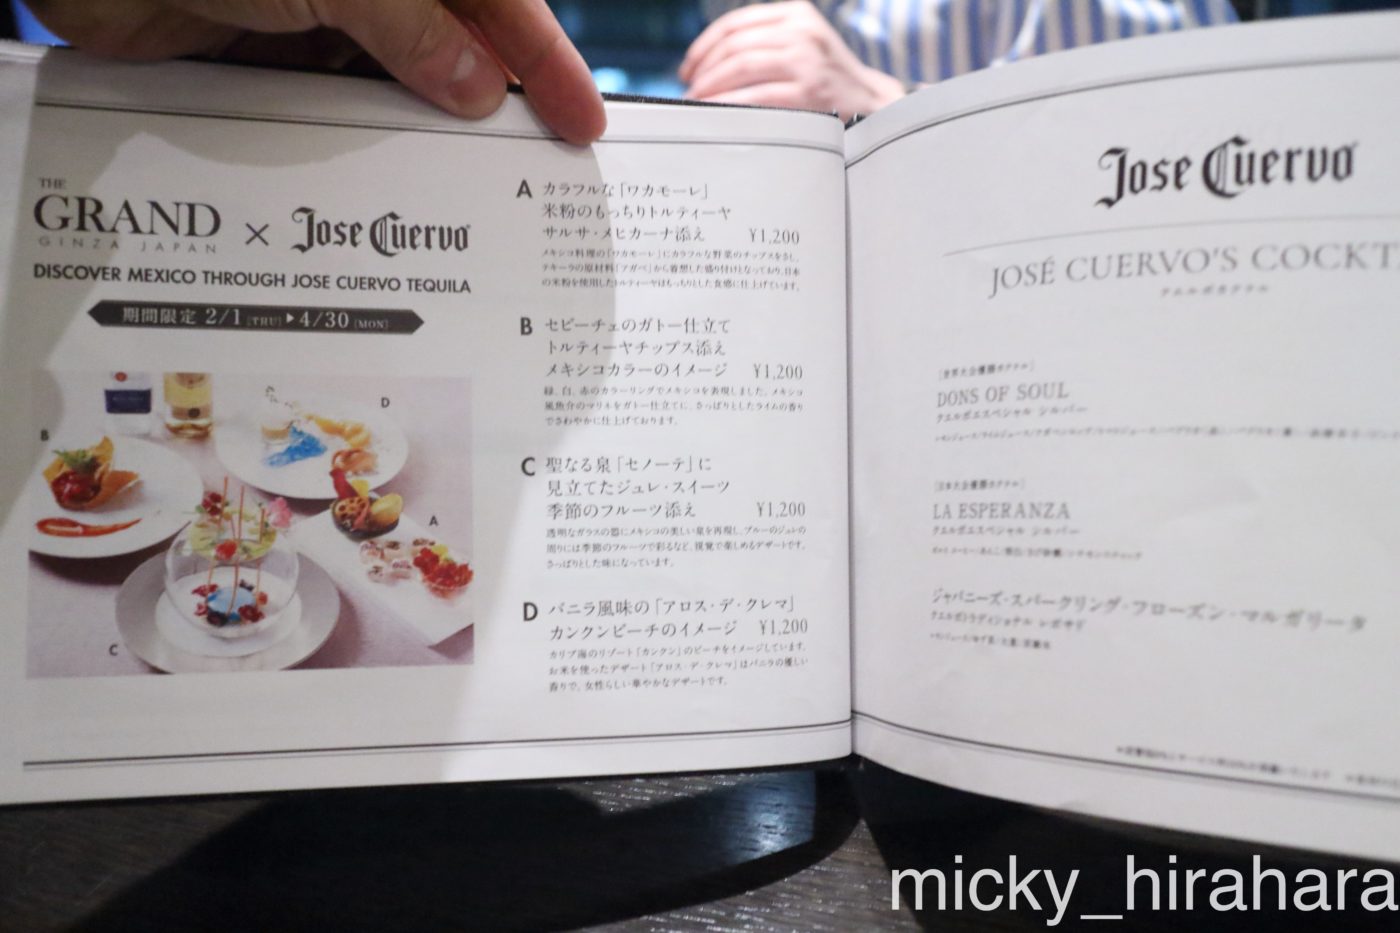 THE
GRAND
GINZA JAPAN
×
Jose Cuervo
DISCOVER MEXICO THROUGH JOSE CUERVO TEQUILA
期間限定 2/1 [THU] ▶ 4/30 [MON]
B
D
A
C
A カラフルな「ワカモーレ」
米粉のもっちりトルティーヤ
サルサ・メヒカーナ添え ¥1,200
メキシコ料理の「ワカモーレ」にカラフルな野菜のチップスをさし、
テキーラの原材料「アガベ」から着想した盛り付けとなっており、日本
の米粉を使用したトルティーヤはもっちりとした食感に仕上げています。
B セビーチェのガトー仕立て
トルティーヤチップス添え
メキシコカラーのイメージ ¥1,200
緑、白、赤のカラーリングでメキシコを表現しました。メキシコ
風魚介のマリネをガトー仕立てに、さっぱりとしたライムの香り
でさわやかに仕上げております。
C 聖なる泉「セノーテ」に
見立てたジュレ・スイーツ
季節のフルーツ添え ¥1,200
透明なガラスの器にメキシコの美しい泉を再現し、ブルーのジュレの
周りには季節のフルーツで彩るなど、視覚で楽しめるデザートです。
さっぱりとした味になっています。
D バニラ風味の「アロス・デ・クレマ」
カンクンビーチのイメージ ¥1,200
カリブ海のリゾート「カンクン」のビーチをイメージしています。
お米を使ったデザート「アロス・デ・クレマ」はバニラの優しい
香りで、女性らしい華やかなデザートです。
Jose Cuervo
JOSÉ CUERVO'S COCKT
クエルボカクテル
[世界大会優勝カクテル]
DONS OF SOUL
クエルボエスペシャル シルバー
[日本大会優勝カクテル]
LA ESPERANZA
クエルボエスペシャル シルバー
ジャパニーズ・スパークリング・フローズン・マルガリータ
クエルボトラディショナル レポサド
micky_hirahara